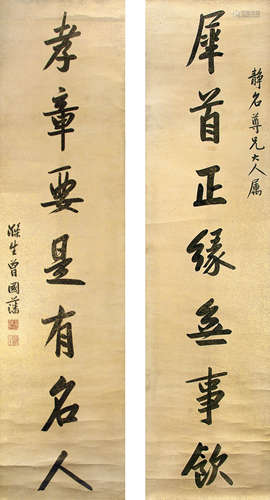 静名尊兄大人属
犀首正緣無事飲
孝章要是有名人
滌生曾國藩